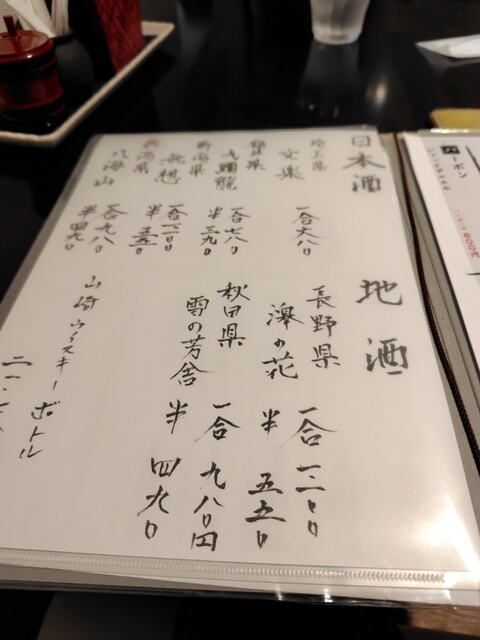 日本酒
埼玉県
文楽
一合 六八〇
九頭龍
一合 七八〇
半 三九〇
新潟県
無想
一合 一一〇〇
半 五五〇
新潟県
八海山
一合 九八〇
半 四九〇
地酒
長野県
一合 一一〇〇
の花
半 五五〇
秋田県
一合 九八〇円
雪の芳舎
半 四九〇
山崎ウイスキーボトル